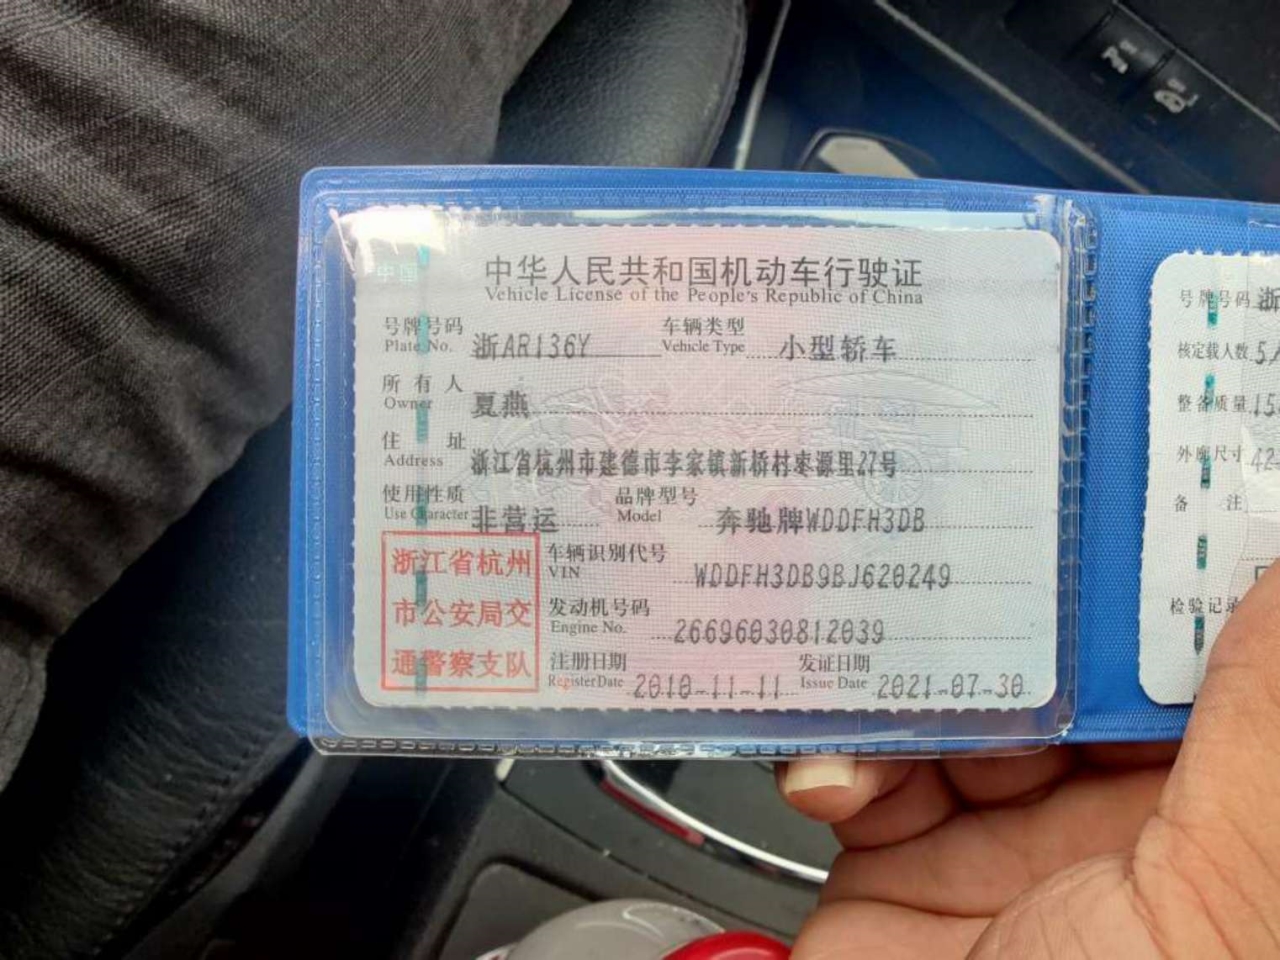 中国
中华人民共和国机动车行驶证
Vehicle License of the People's Republic of China
号牌号码 浙AR136Y 车辆类型 小型轿车
Plate No. Vehicle Type
所有人 夏燕
Owner
住址 浙江省杭州市建德市李家镇新桥村枣源里27号
Address
使用性质 非营运 品牌型号 奔驰牌WDDFH3DB
Use Character Model
浙江省杭州
市公安局交
通警察支队
车辆识别代号 WDDFH3DB9BJ620249
VIN
发动机号码 26696030812039
Engine No.
注册日期 2010-11-11 发证日期 2021-07-30
Register Date Issue Date
号牌号码 浙
核定载人数 5
整备质量 15
外廓尺寸 42
备注
检验记录